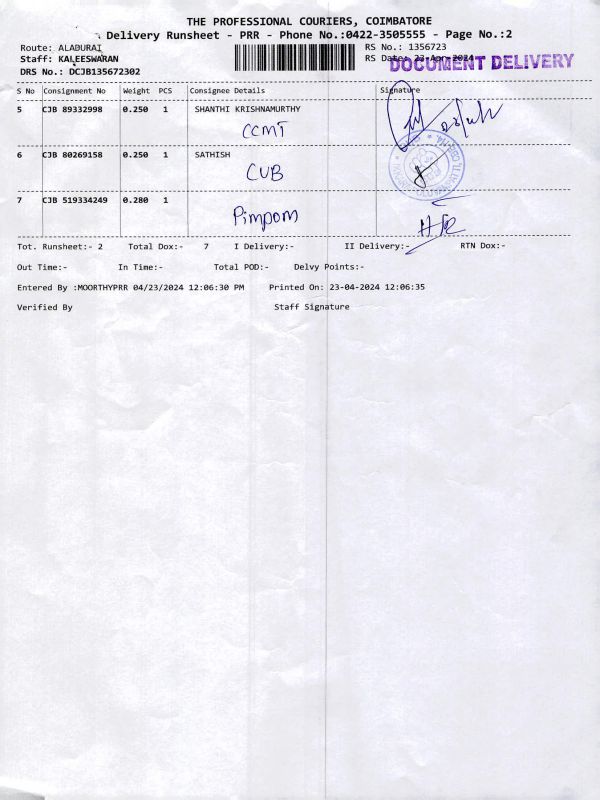 THE PROFESSIONAL COURIERS, COIMBATORE
Delivery Runsheet - PRR - Phone No.:0422-3505555 - Page No.:2
Route: ALADURAI RS No.: 1356723
Staff: KALEESWARAN RS Date: 23-Apr-2024
DOCUMENT DELIVERY
DRS No.: DCJB135672302
S No Consignment No Weight PCS Consignee Details Signature
5 CJB 89332998 0.250 1 SHANTHI KRISHNAMURTHY
CCMT
6 CJB 80269158 0.250 1 SATHISH
CUB
7 CJB 519334249 0.280 1
Pimpom
Tot. Runsheet:- 2 Total Dox:- 7 I Delivery:- II Delivery:- RTN Dox:-
Out Time:- In Time:- Total POD:- Delvy Points:-
Entered By :MOORTHYPRR 04/23/2024 12:06:30 PM Printed On: 23-04-2024 12:06:35
Verified By Staff Signature